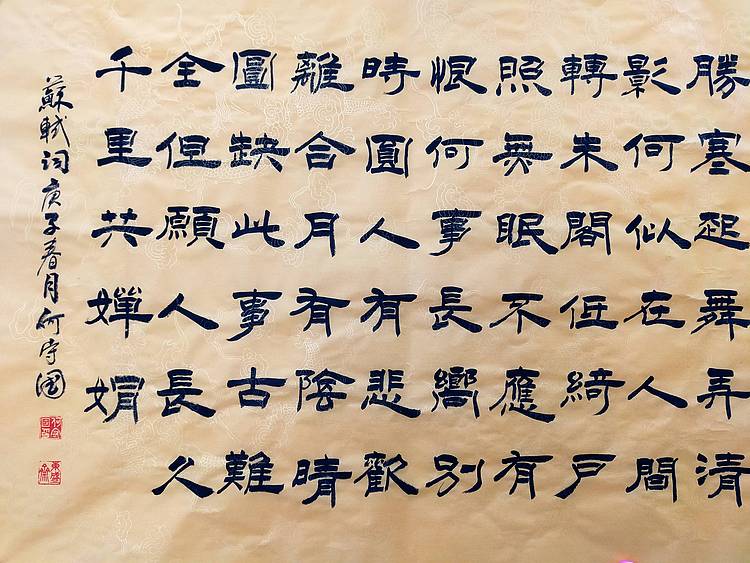 勝寒起舞弄清
影何似在人間
轉朱閣低綺戶
照無眠不應有
恨何事長嚮別
時圓人有悲歡
離合月有陰晴
圖缺此事古難
全但願人長久
千里共嬋娟
蘇軾詞庚子春月何守國